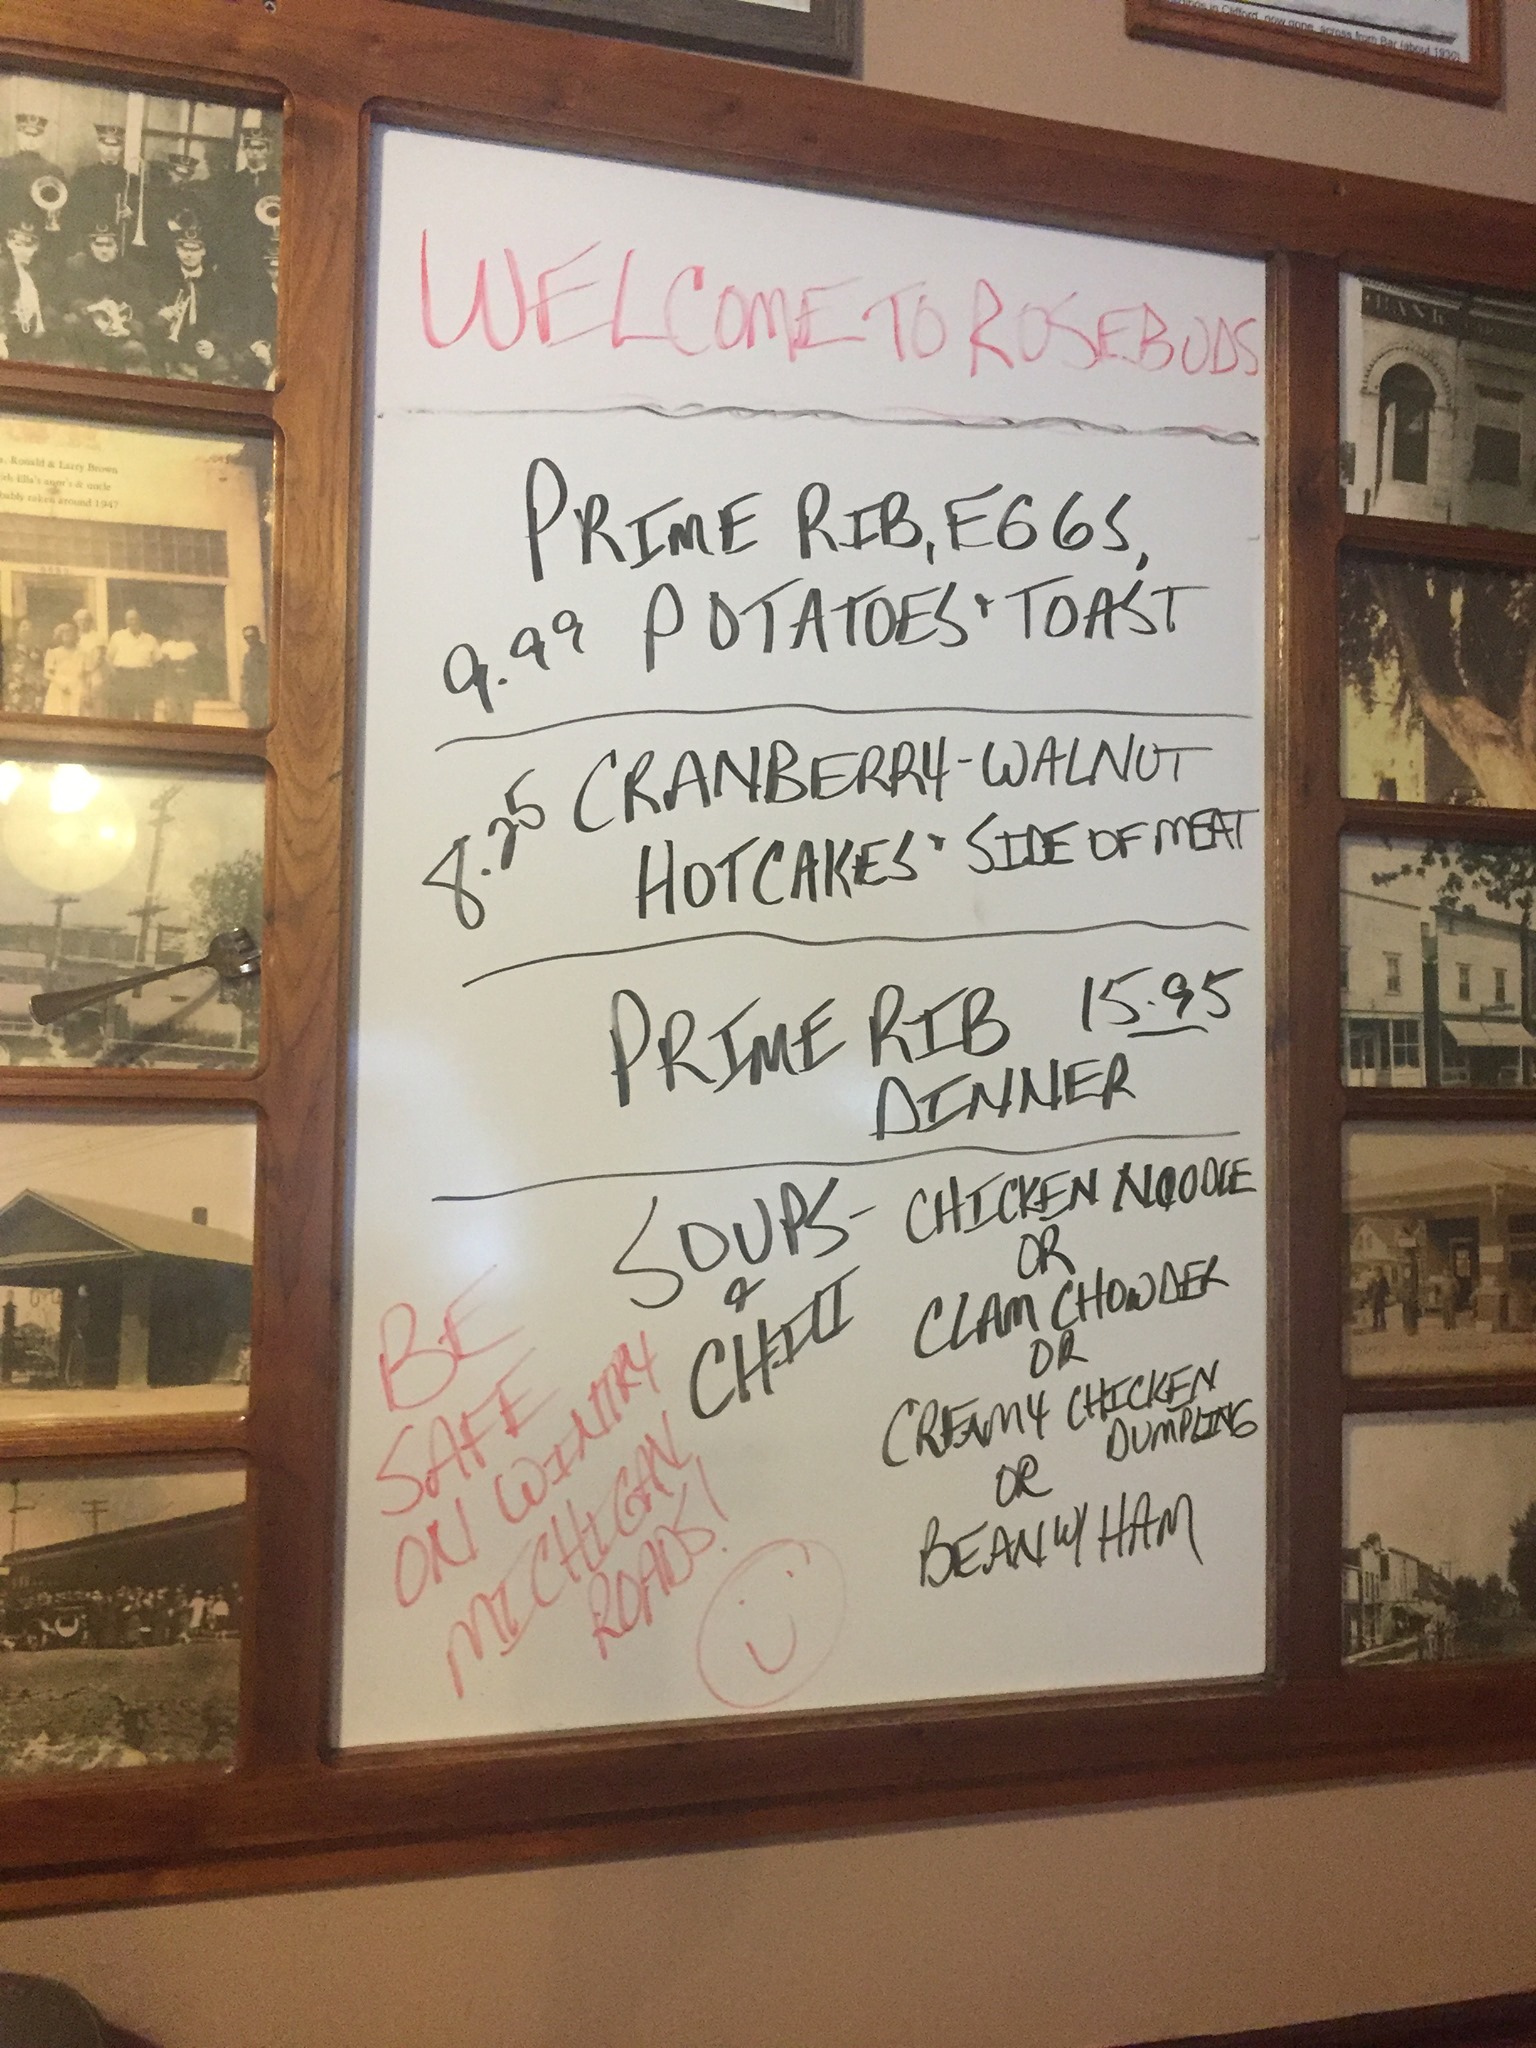 ldings in Clifford, now gone, across from Bar (about 1930)
WELCOME TO ROSEBUDS
PRIME RIB, EGGS,
9.99 POTATOES + TOAST
8.25 CRANBERRY-WALNUT
HOTCAKES + SIDE OF MEAT
PRIME RIB 15.95
DINNER
SOUPS - CHICKEN NOODLE
&
CHILI
OR
CLAM CHOWDER
OR
CREAMY CHICKEN
DUMPLING
OR
BEAN W/ HAM
BE
SAFE
ON WINTRY
MICHIGAN
ROADS!
, Ronald & Larry Brown
ith Ella's aunt's & uncle
bably taken around 1947
BANK